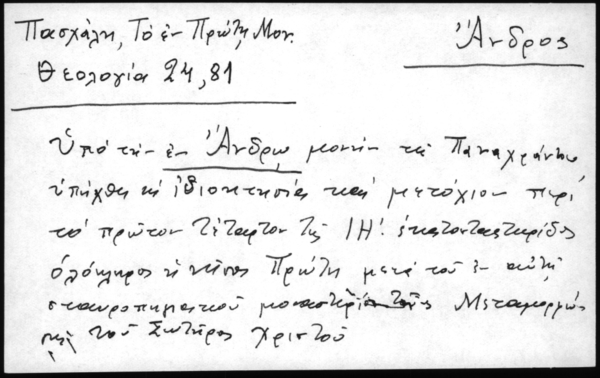 Πασχάλη, Τὸ ἐν Πρώτῃ Μον.
Ἄνδρος
Θεολογία 24, 81
Ὑπὸ τὴν ἐν Ἄνδρῳ μονὴν τῆς Παναχράντου
ὑπήχθη ὡς ἰδιοκτησία καὶ μετόχιον περὶ
τὸ πρῶτον τέταρτον τῆς ΙΗ΄. ἑκατονταετηρίδος
ὁλόκληρος ἡ νῆσος Πρώτη μετὰ τοῦ ἐν αὐτῇ
σταυροπηγιακοῦ μοναστηρίου τῆς Μεταμορφώ
σεως τοῦ Σωτῆρος Χριστοῦ